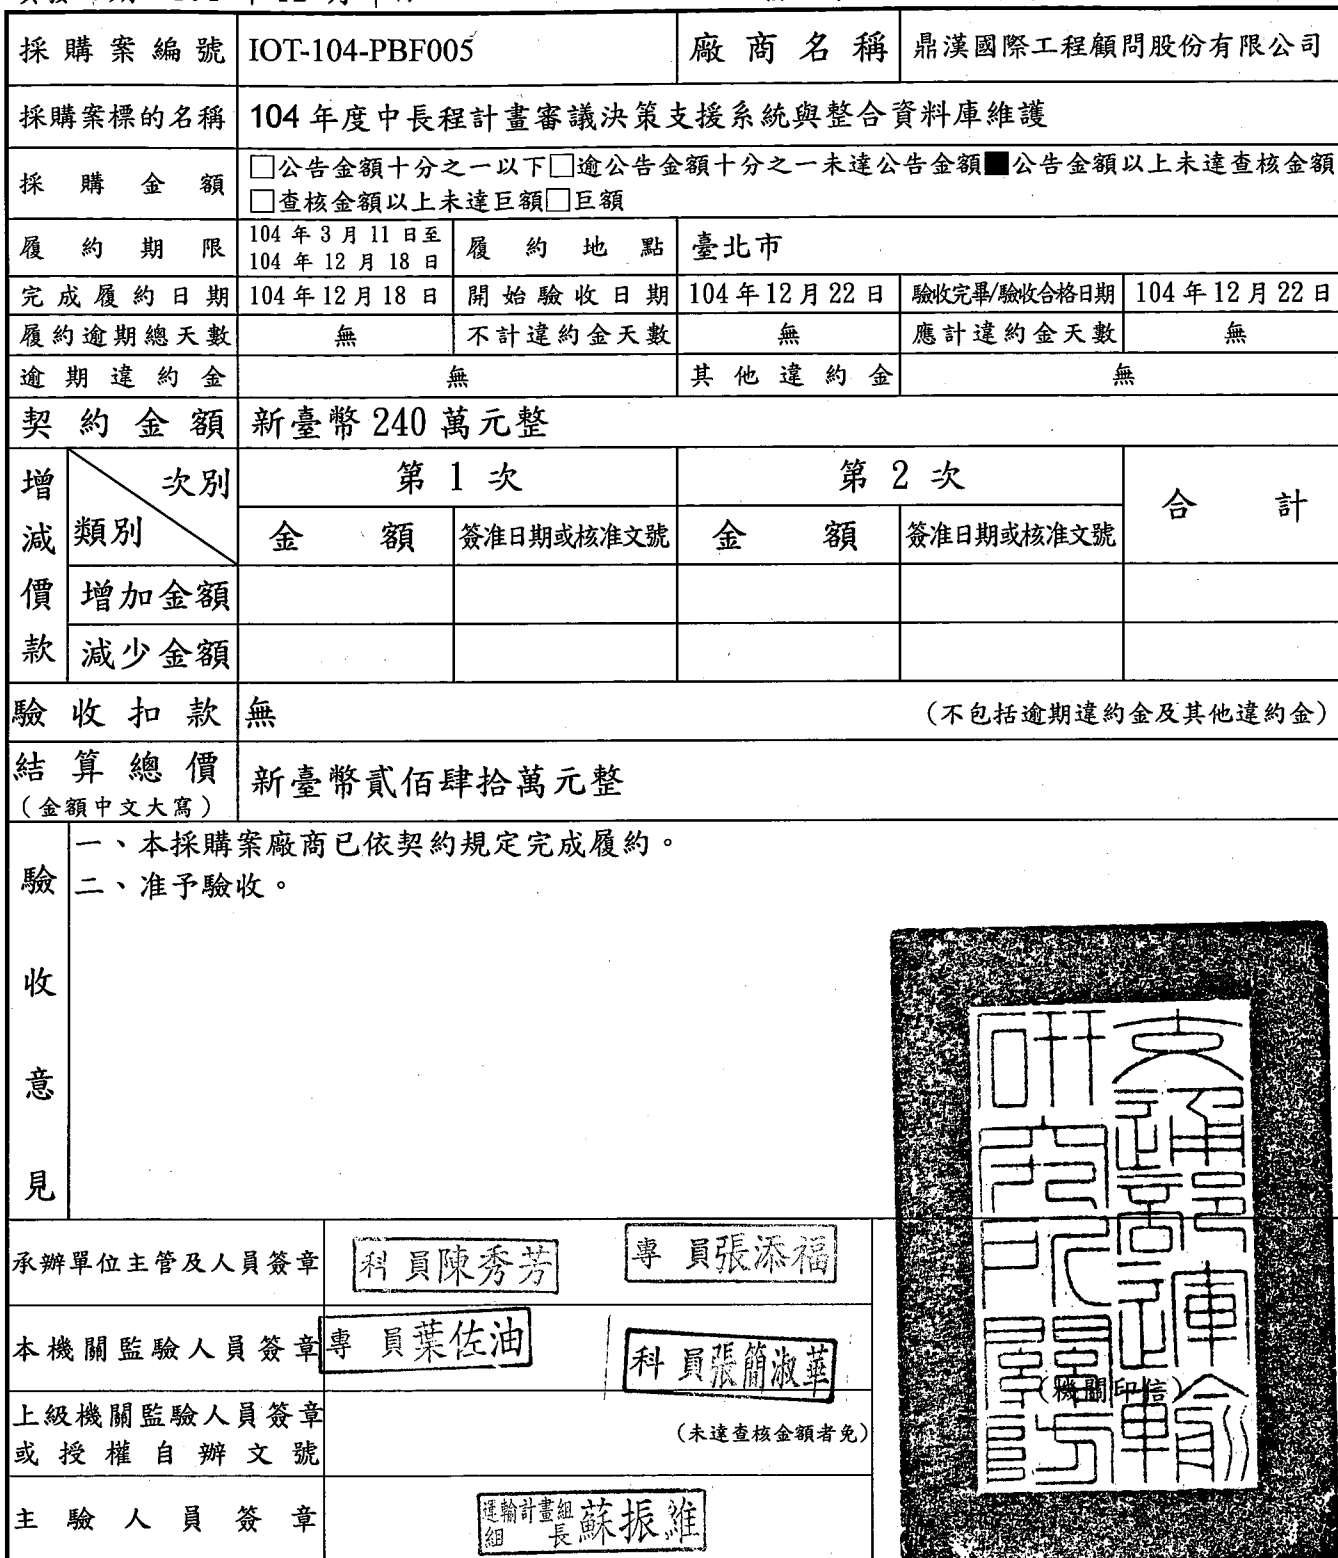 採購案編號 IOT-104-PBF005 廠商名稱 鼎漢國際工程顧問股份有限公司
採購案標的名稱 104年度中長程計畫審議決策支援系統與整合資料庫維護
採購金額 □公告金額十分之一以下□逾公告金額十分之一未達公告金額■公告金額以上未達查核金額
□查核金額以上未達巨額□巨額
履約期限 104年3月11日至
104年12月18日 履約地點 臺北市
完成履約日期 104年12月18日 開始驗收日期 104年12月22日 驗收完畢/驗收合格日期 104年12月22日
履約逾期總天數 無 不計違約金天數 無 應計違約金天數 無
逾期違約金 無 其他違約金 無
契約金額 新臺幣240萬元整
增減價款 次別 第1次 第2次 合計
類別 金額 簽准日期或核准文號 金額 簽准日期或核准文號
增加金額
減少金額
驗收扣款 無 (不包括逾期違約金及其他違約金)
結算總價 新臺幣貳佰肆拾萬元整
(金額中文大寫)
驗收意見 一、本採購案廠商已依契約規定完成履約。
二、准予驗收。
承辦單位主管及人員簽章 科員陳秀芳 專員張添福
本機關監驗人員簽章 專員葉佐油 科員張簡淑華
(機關印信)
上級機關監驗人員簽章
或授權自辦文號 (未達查核金額者免)
主驗人員簽章 運輸計畫組
組長 蘇振維